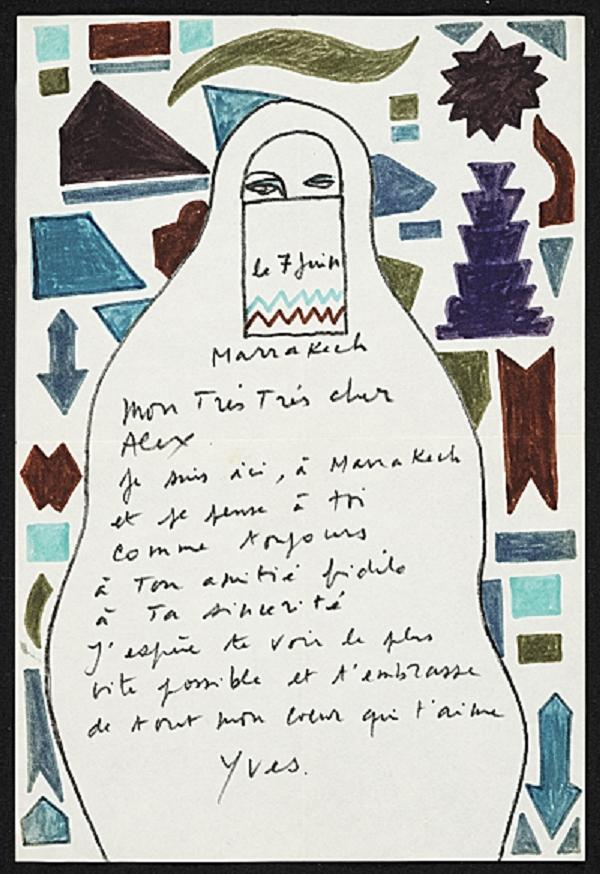 le 7 juin
Marrakech
Mon Très Très cher
Alex
Je suis ici, à Marrakech
et je pense à toi
comme toujours
à Ton amitié fidèle
à Ta sincerité
J'espère te voir le plus
vite possible et t'embrasse
de tout mon coeur qui t'aime
Yves.